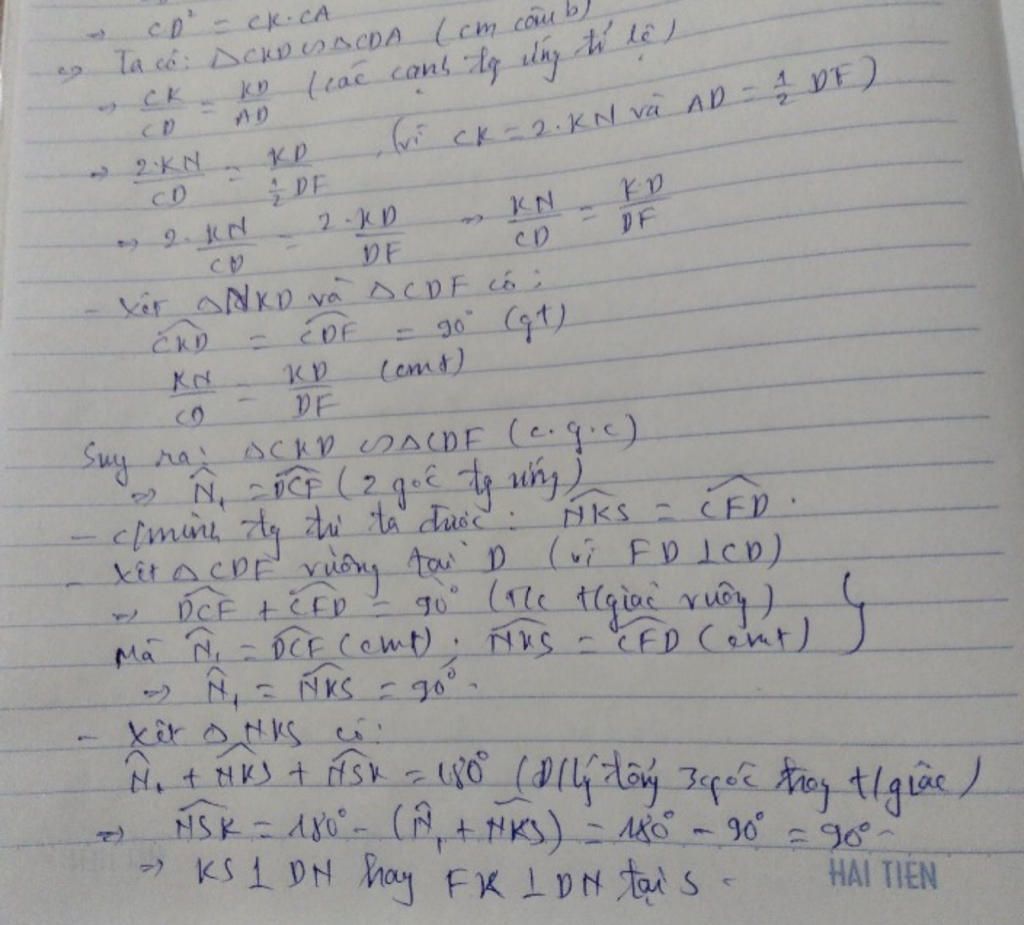 → CD² = CK.CA
=> Ta có: △CKD ∽ △CDA (cm câu b)
→ CK/CD = KD/AD (các cạnh tg ứng tỉ lệ)
→ 2.KN/CD = KD/(1/2 DF) (vì CK = 2.KN và AD = 1/2 DF)
=> 2.KN/CD = 2.KD/DF => KN/CD = KD/DF
- Xét △NKD và △CDF có:
∠CKD = ∠CDF = 90° (gt)
KN/CD = KD/DF (cmt)
Suy ra: △CKD ∽ △CDF (c.g.c)
=> N̂₁ = ∠DCF (2 góc tg ứng)
- c/minh tg tự ta được: ∠NKS = ∠CFD.
- Xét △CDF vuông tại D (vì FD ⊥ CD)
=> ∠DCF + ∠CFD = 90° (t/c t/giác vuông) }
Mà N̂₁ = ∠DCF (cmt); ∠NKS = ∠CFD (cmt)
=> N̂₁ = ∠NKS = 90°.
- Xét △NKS có:
N̂₁ + ∠NKS + ∠NSK = 180° (Đ/lý tổng 3 góc trong t/giác)
=> ∠NSK = 180° - (N̂₁ + ∠NKS) = 180° - 90° = 90°
=> KS ⊥ DN hay FK ⊥ DN tại S.
HẢI TIẾN